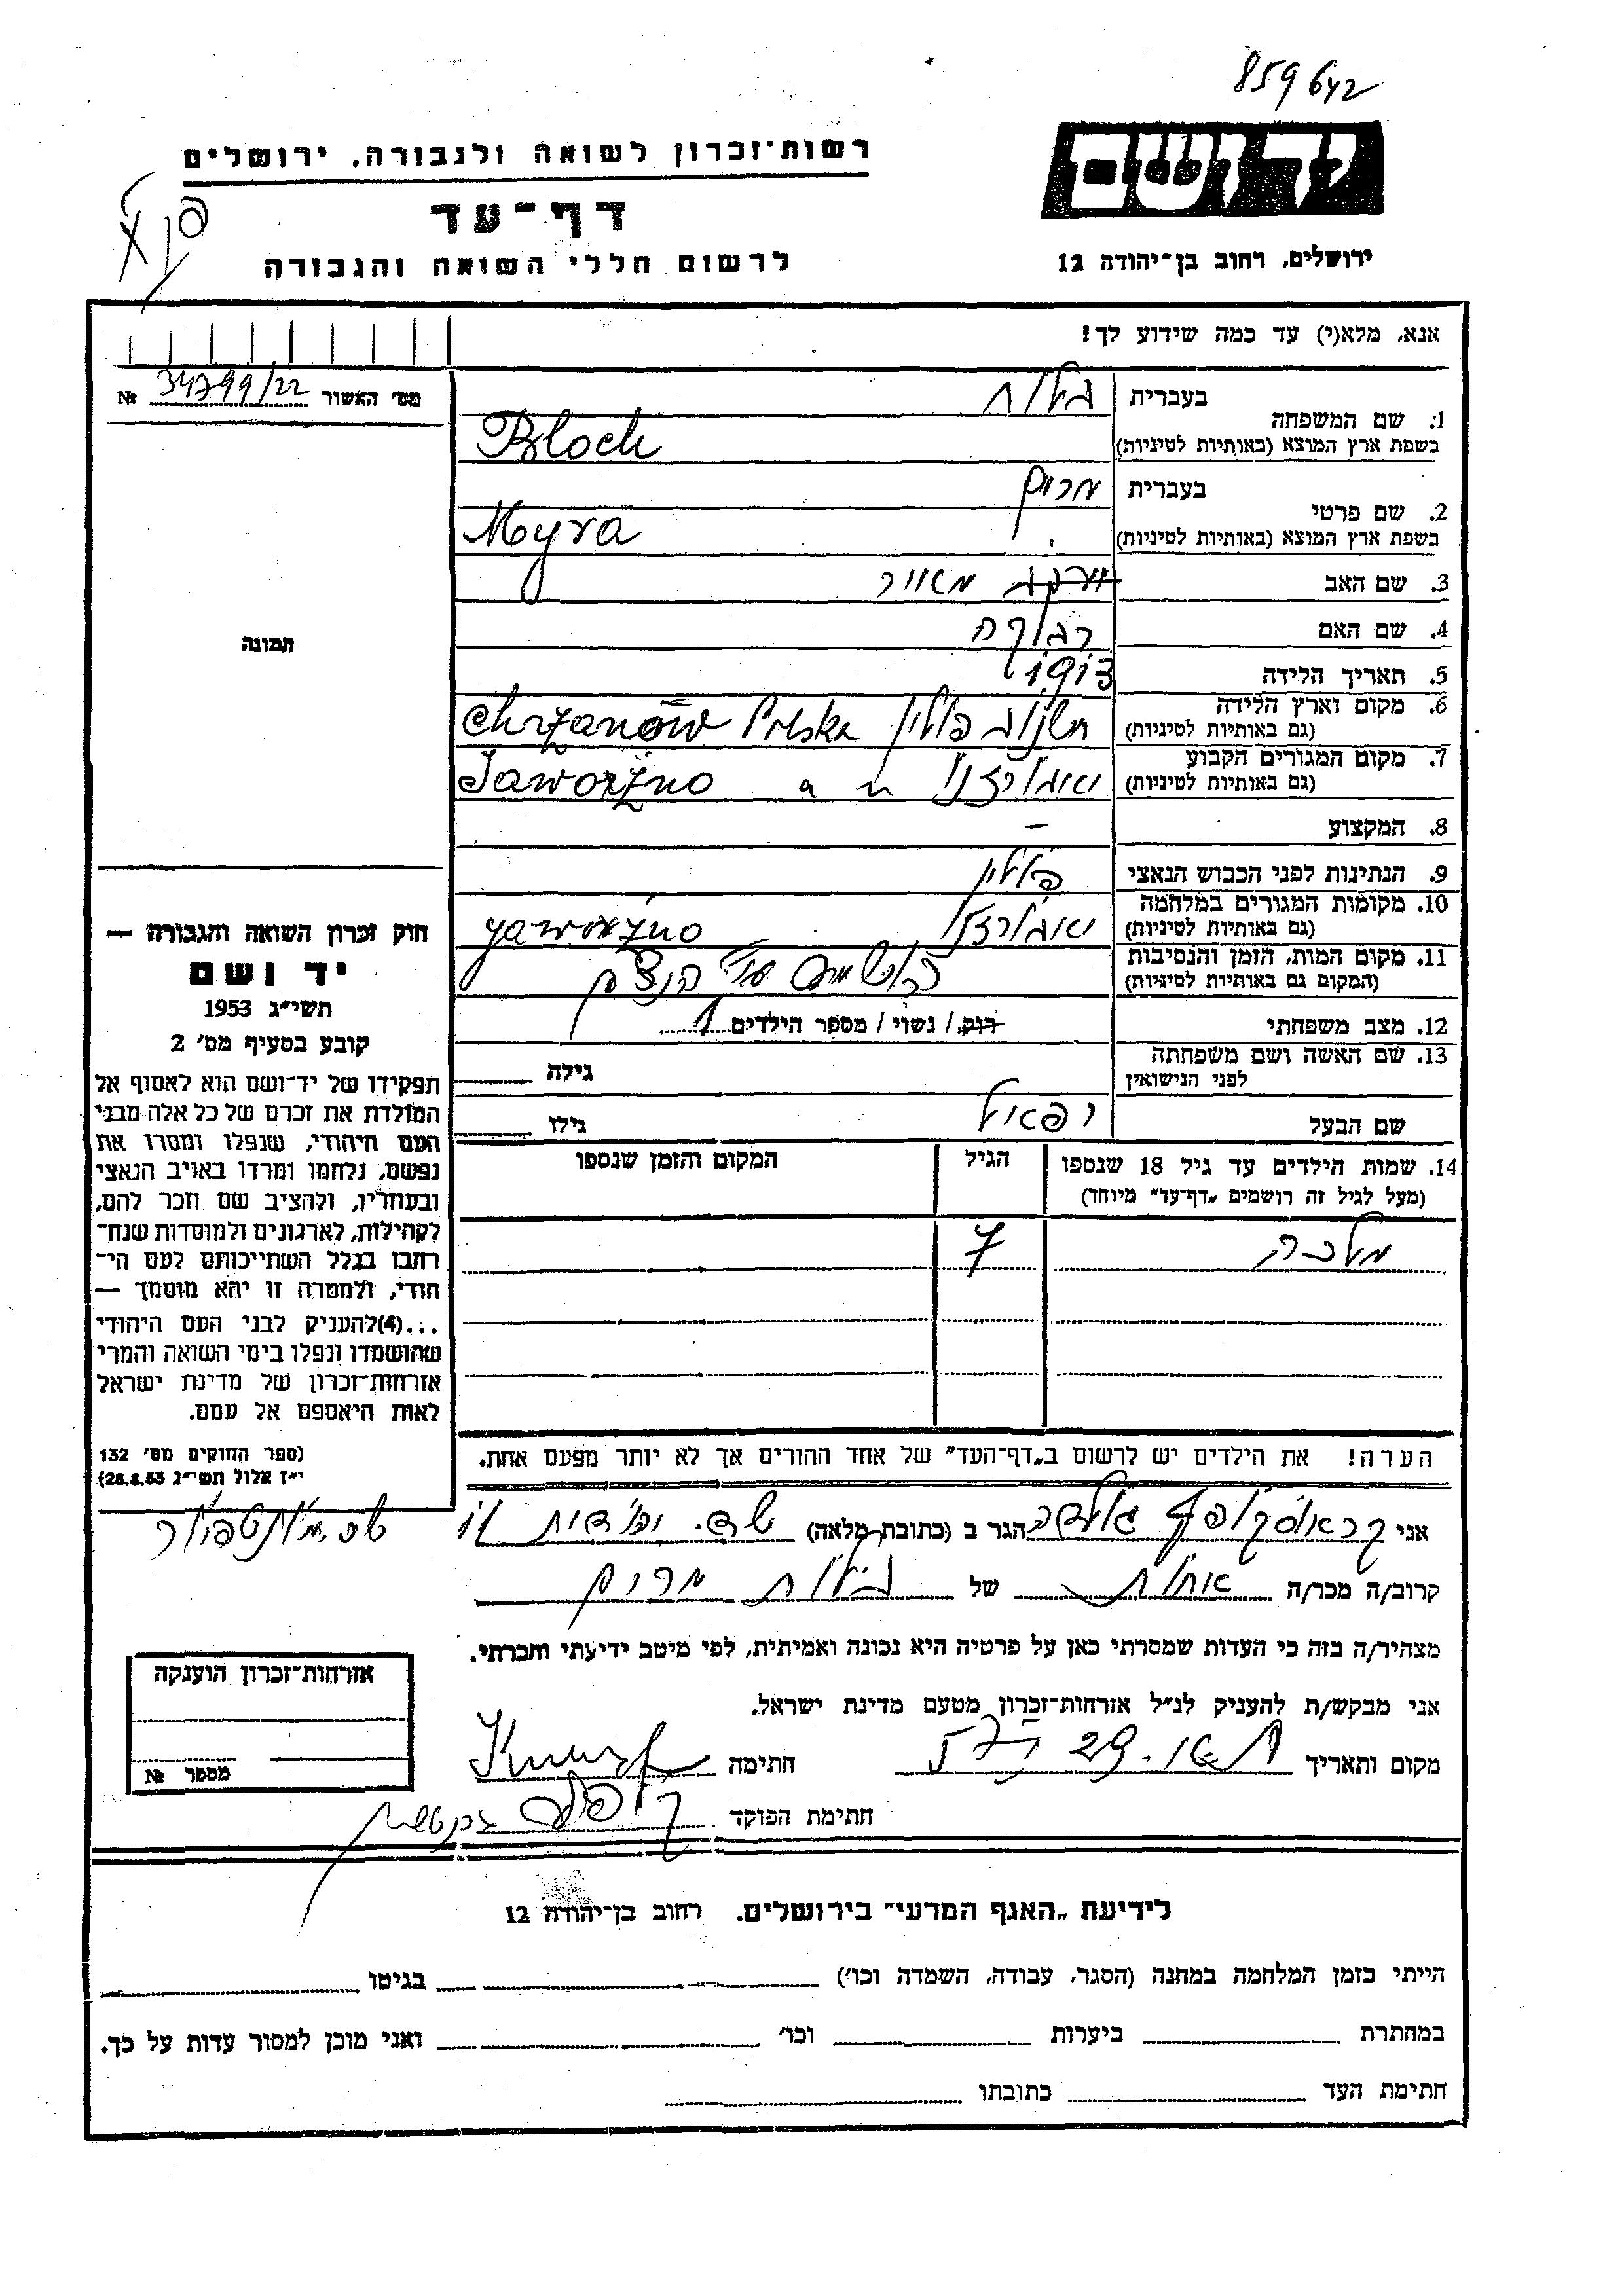 859642
ידושם
רשות־זכרון לשואה ולגבורה. ירושלים
דף־עד
לרשום חללי השואה והגבורה
ירושלים, רחוב בן־יהודה 12
אנא, מלא(י) עד כמה שידוע לך!
מס׳ האשור № 34799/22
1. שם המשפחה
בעברית בלוך
בשפת ארץ המוצא (באותיות לטיניות) Bloch
2. שם פרטי
בעברית מרים
בשפת ארץ המוצא (באותיות לטיניות) Myra
3. שם האב מאיר
4. שם האם רבקה
5. תאריך הלידה 1913
6. מקום וארץ הלידה
(גם באותיות לטיניות) פולין Chrzanów Polska
7. מקום המגורים הקבוע
(גם באותיות לטיניות) יאבורזנו " " Jaworżno
8. המקצוע —
9. הנתינות לפני הכבוש הנאצי פולין
10. מקומות המגורים במלחמה
(גם באותיות לטיניות) יאבורזנו yaworżno
11. מקום המות, הזמן והנסיבות
(המקום גם באותיות לטיניות)
12. מצב משפחתי רוק / נשוי / מספר הילדים 1
13. שם האשה ושם משפחתה
לפני הנישואין גילה
שם הבעל רפאל גילו
14. שמות הילדים עד גיל 18 שנספו
(מעל לגיל זה רושמים „דף־עד״ מיוחד)
הגיל
המקום והזמן שנספו
מלכה 7
תמונה
חוק זכרון השואה והגבורה —
יד ושם
תשי״ג 1953
קובע בסעיף מס׳ 2
תפקידו של יד־ושם הוא לאסוף אל
המולדת את זכרם של כל אלה מבני
העם היהודי, שנפלו ומסרו את
נפשם, נלחמו ומרדו באויב הנאצי
ובעוזריו, ולהציב שם וזכר להם,
לקהילות, לארגונים ולמוסדות שנח־
רבו בגלל השתייכותם לעם הי־
הודי, ולמטרה זו יהא מוסמך —
...(4) להעניק לבני העם היהודי
שהושמדו ונפלו בימי השואה והמרי
אזרחות־זכרון של מדינת ישראל
לאות היאספם אל עמם.
(ספר החוקים מס׳ 132
י״ז אלול תשי״ג 28.8.53)
הערה! את הילדים יש לרשום ב„דף־העד״ של אחד ההורים אך לא יותר מפעם אחת.
אני הגר ב (כתובת מלאה)
קרוב/ה מכר/ה אחות של בלוך מרים
מצהיר/ה בזה כי העדות שמסרתי כאן על פרטיה היא נכונה ואמיתית, לפי מיטב ידיעתי והכרתי.
אני מבקש/ת להעניק לנ״ל אזרחות־זכרון מטעם מדינת ישראל.
מקום ותאריך חתימה
חתימת הפוקד
אזרחות־זכרון הוענקה
מספר №
לידיעת „האגף המדעי״ בירושלים. רחוב בן־יהודה 12
הייתי בזמן המלחמה במחנה (הסגר, עבודה, השמדה וכו׳) בגיטו
במחתרת ביערות וכו׳ ואני מוכן למסור עדות על כך.
חתימת העד כתובתו